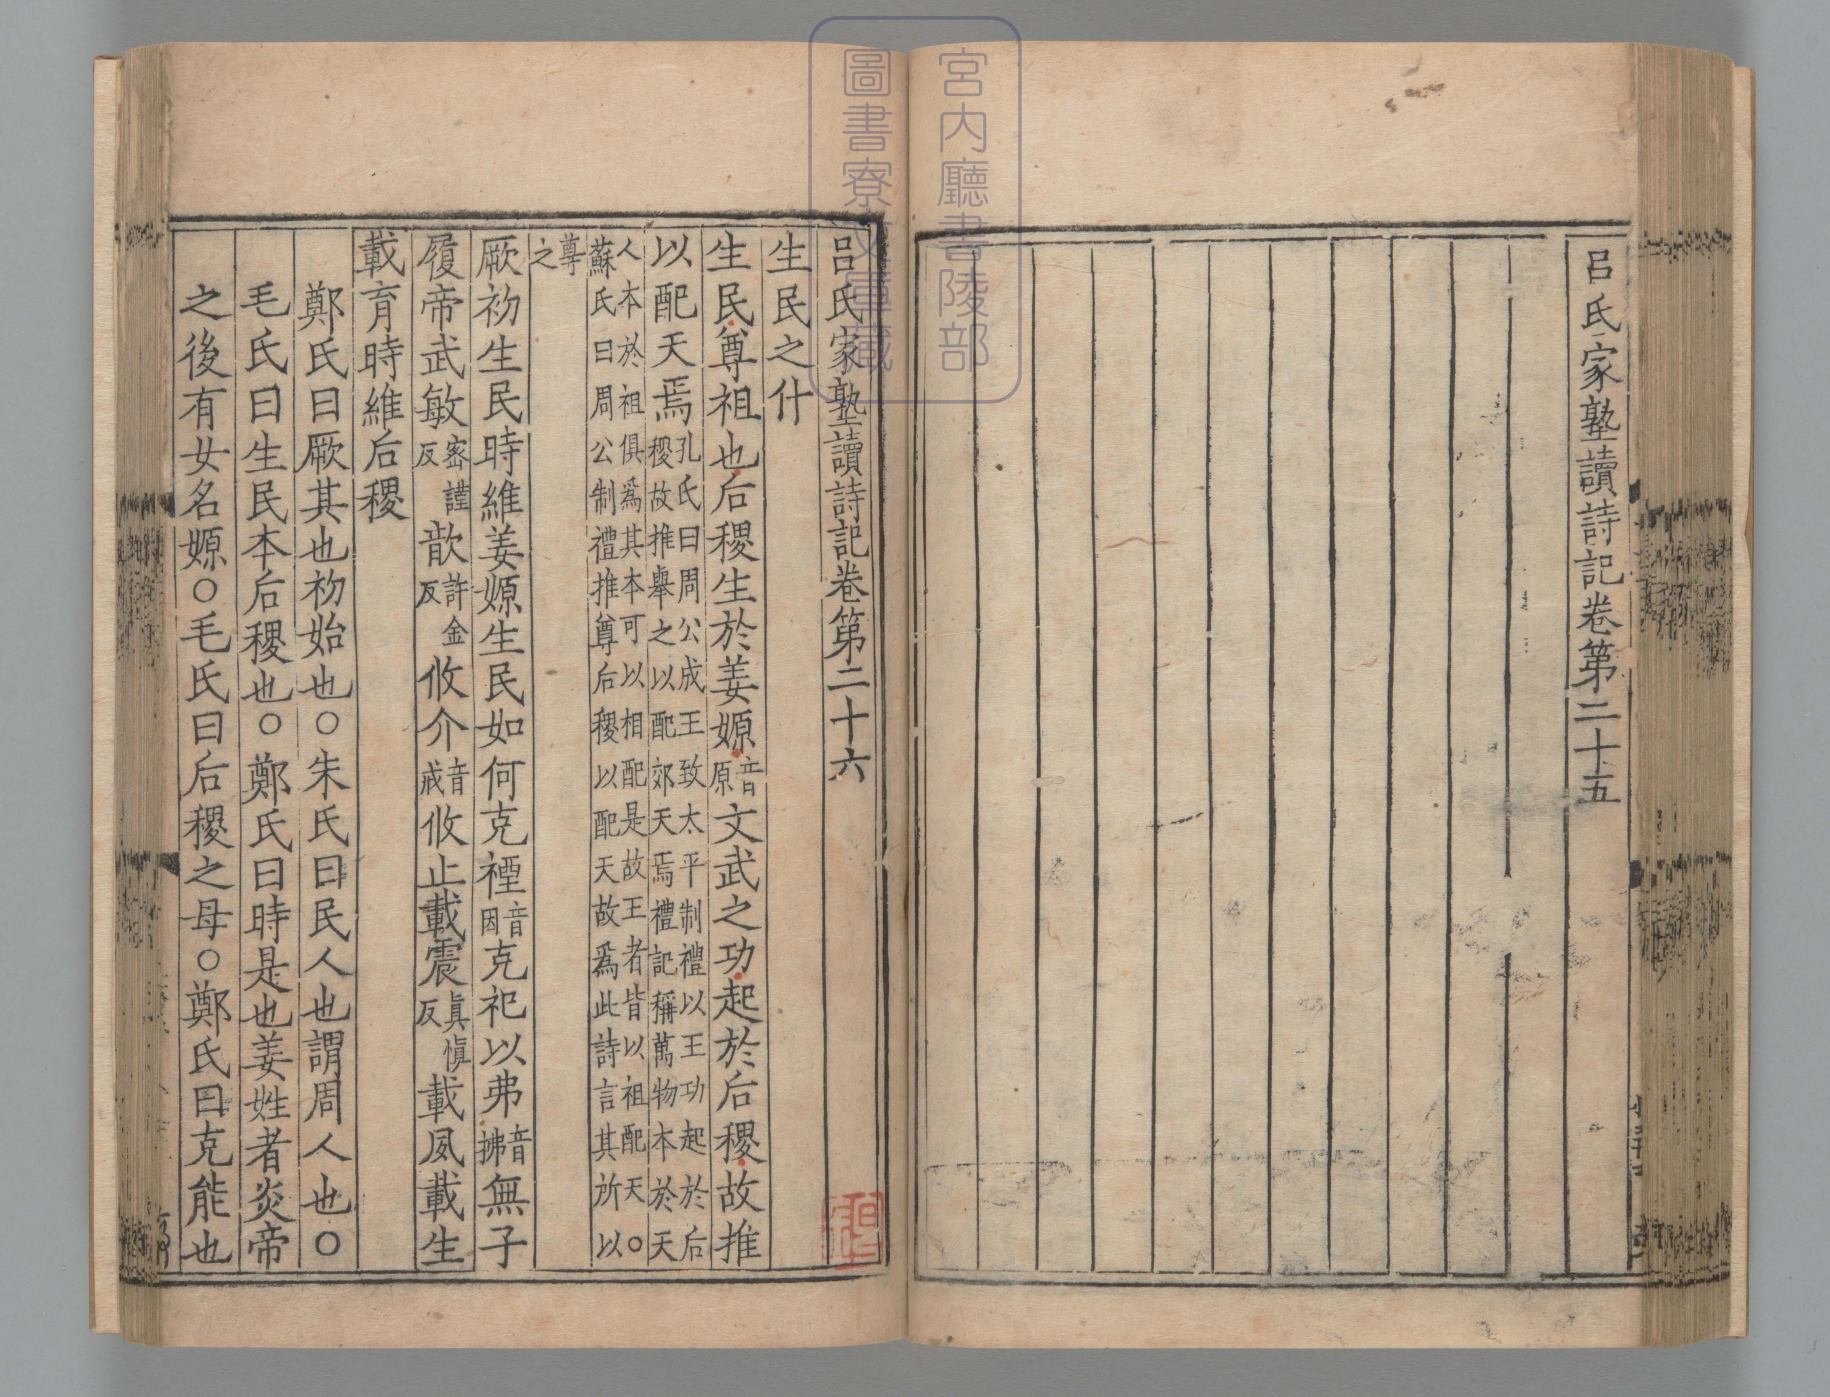 宮内廳書陵部
圖書寮文庫藏
呂氏家塾讀詩記卷第二十五
呂氏家塾讀詩記卷第二十六
生民之什
生民尊祖也后稷生於姜嫄音原文武之功起於后稷故推
以配天焉孔氏曰周公成王致太平制禮以王功起於后稷故推舉之以配郊天焉禮記稱萬物本於天
人本於祖俱爲其本可以相配是故王者皆以祖配天○蘇氏曰周公制禮推尊后稷以配天故爲此詩言其所以
尊之
厥初生民時維姜嫄生民如何克禋音因克祀以弗音拂無子
履帝武敏密謹反歆許金反攸介音戒攸止載震眞愼反載夙載生
載育時維后稷
鄭氏曰厥其也初始也○朱氏曰民人也謂周人也○
毛氏曰生民本后稷也○鄭氏曰時是也姜姓者炎帝
之後有女名嫄○毛氏曰后稷之母○鄭氏曰克能也